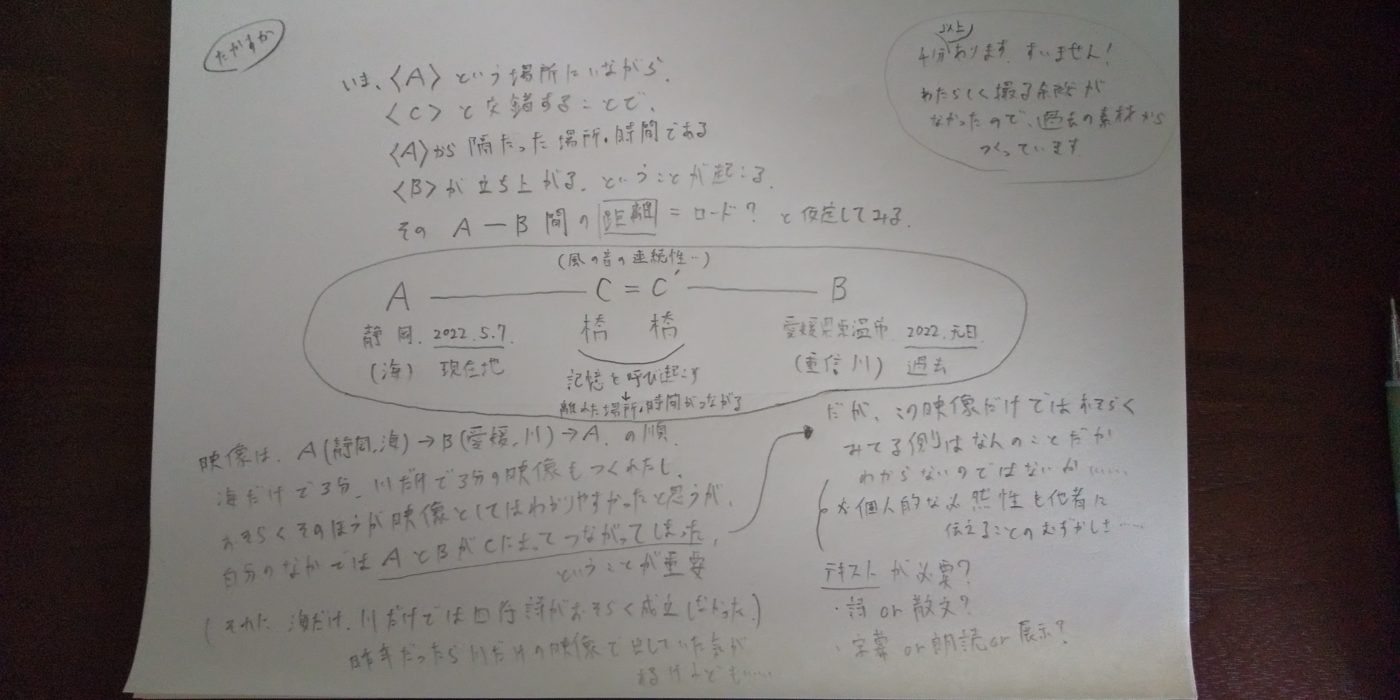 たかすか
いま、〈A〉という場所にいながら、
〈C〉と交錯することで、
〈A〉から隔たった場所・時間である
〈B〉が立ち上がる、ということが起こる。
その A—B 間の 距離 = ロード? と仮定してみる
以上
4分あります。すいません!
あたらしく撮る余裕が
なかったので、過去の素材から
つくっています
(風の音の連続性…)
A — C = C′ — B
静岡、2022.5.7 橋 橋 愛媛県東温市 2022.元日
(海) 現在地 (重信川) 過去
記憶を呼び起こす
↓
離れた場所・時間がつながる
映像は、A(静岡,海)→B(愛媛,川)→A、の順。
海だけで3分、川だけで3分の映像もつくれたし、
おそらくそのほうが映像としてはわかりやすかったと思うが、
自分のなかではAとBがCによってつながってしまった、
ということが重要
(それに海だけ、川だけでは四行詩がおそらく成立しなかった)
昨年だったら川だけの映像で出していた気が
するけれども……
だが、この映像だけではおそらく
みてる側はなんのことだか
わからないのではないか……
個人的な必然性を他者に
伝えることのむずかしさ……
テキストが必要?
・詩 or 散文?
・字幕 or 朗読 or 展示?